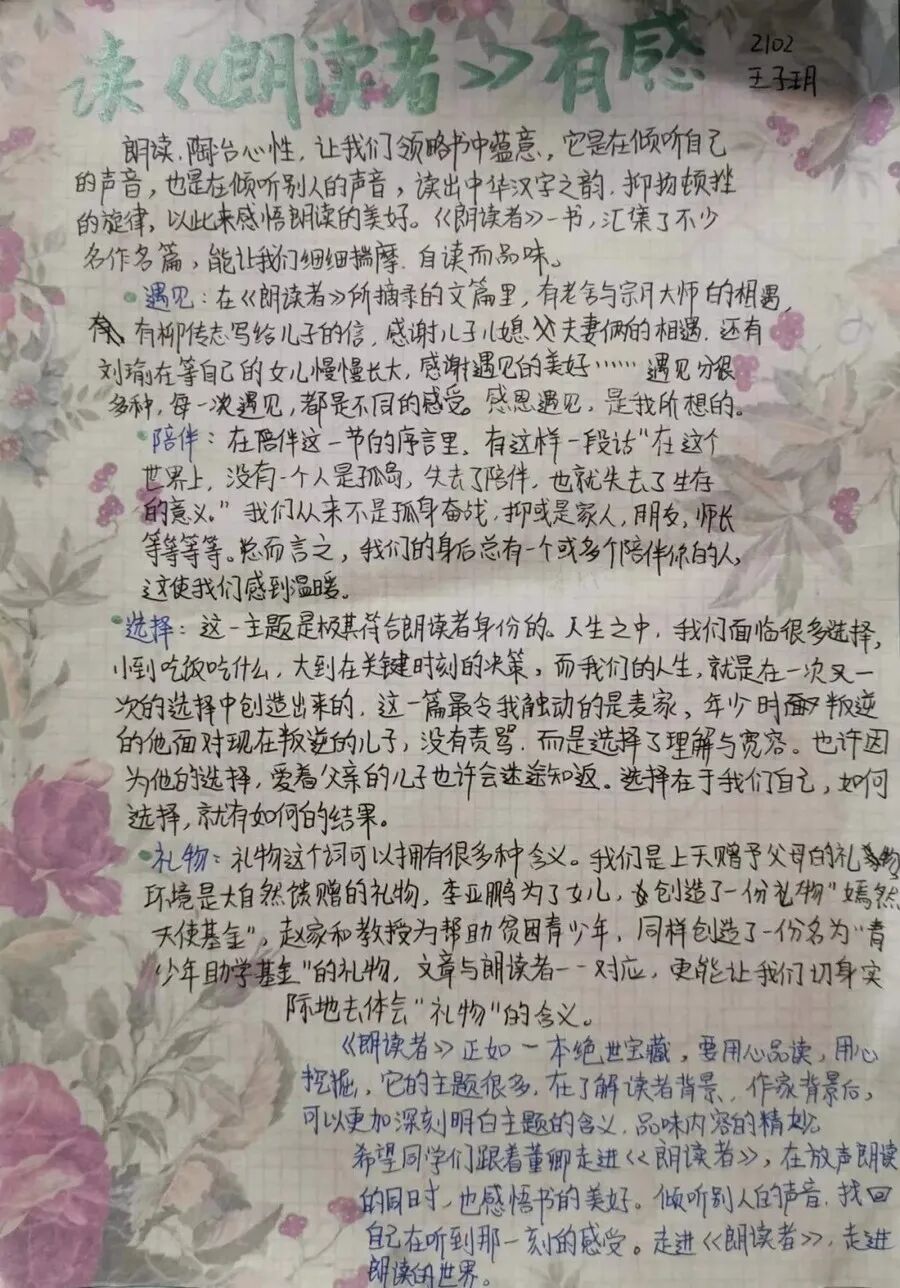 读《朗读者》有感
2102
王子玥
朗读,陶冶心性,让我们领略书中蕴意,它是在倾听自己
的声音,也是在倾听别人的声音,读出中华汉字之韵,抑扬顿挫
的旋律,以此来感悟朗读的美好。《朗读者》一书,汇集了不少
名作名篇,能让我们细细揣摩,自读而品味。
遇见:在《朗读者》所摘录的文篇里,有老舍与宗月大师的相遇,
有柳传志写给儿子的信,感谢儿子儿媳夫妻俩的相遇,还有
刘瑜在等自己的女儿慢慢长大,感谢遇见的美好……遇见分很
多种,每一次遇见,都是不同的感受。感恩遇见,是我所想的。
陪伴:在陪伴这一节的序言里,有这样一段话"在这个
世界上,没有一个人是孤岛,失去了陪伴,也就失去了生存
的意义。"我们从来不是孤身奋战,抑或是家人,朋友,师长
等等等等。总而言之,我们的身后总有一个或多个陪伴你的人,
这使我们感到温暖。
选择:这一主题是极其符合朗读者身份的。人生之中,我们面临很多选择,
小到吃饭吃什么,大到在关键时刻的决策,而我们的人生,就是在一次又一
次的选择中创造出来的,这一篇最令我触动的是麦家、年少时叛逆
的他面对现在叛逆的儿子,没有责骂,而是选择了理解与宽容。也许因
为他的选择,爱着父亲的儿子也许会迷途知返。选择在于我们自己,如何
选择,就有如何的结果。
礼物:礼物这个词可以拥有很多种含义。我们是上天赠予父母的礼物
环境是大自然馈赠的礼物,李亚鹏为了女儿,创造了一份礼物"嫣然
天使基金",赵家和教授为帮助贫困青少年,同样创造了一份名为"青
少年助学基金"的礼物,文章与朗读者一一对应,更能让我们切身实
际地去体会"礼物"的含义。
《朗读者》正如一本绝世宝藏,要用心品读,用心
挖掘,它的主题很多,在了解读者背景、作家背景后,
可以更加深刻明白主题的含义,品味内容的精妙。
希望同学们跟着董卿走进《朗读者》,在放声朗读
的同时,也感悟书的美好。倾听别人的声音,找回
自己在听到那一刻的感受。走进《朗读者》,走进
朗读的世界。